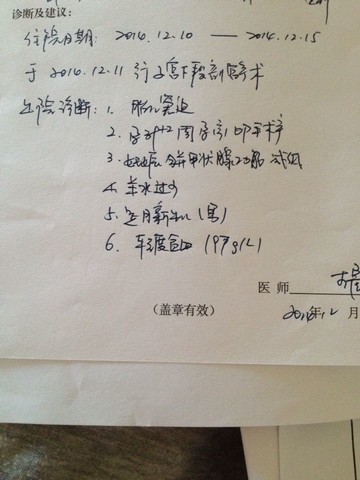 诊断及建议:
住院日期: 2014.12.10 —— 2014.12.15
于2014.12.11行子宫下段剖宫产术
出院诊断: 1. 胎儿窘迫
2. 孕 周 孕1
3. 妊娠合并甲状腺功能减低
4. 羊水过少
5. 足月新生儿(男)
6. 轻度贫血 (97g/L)
医 师
(盖章有效)
年12月